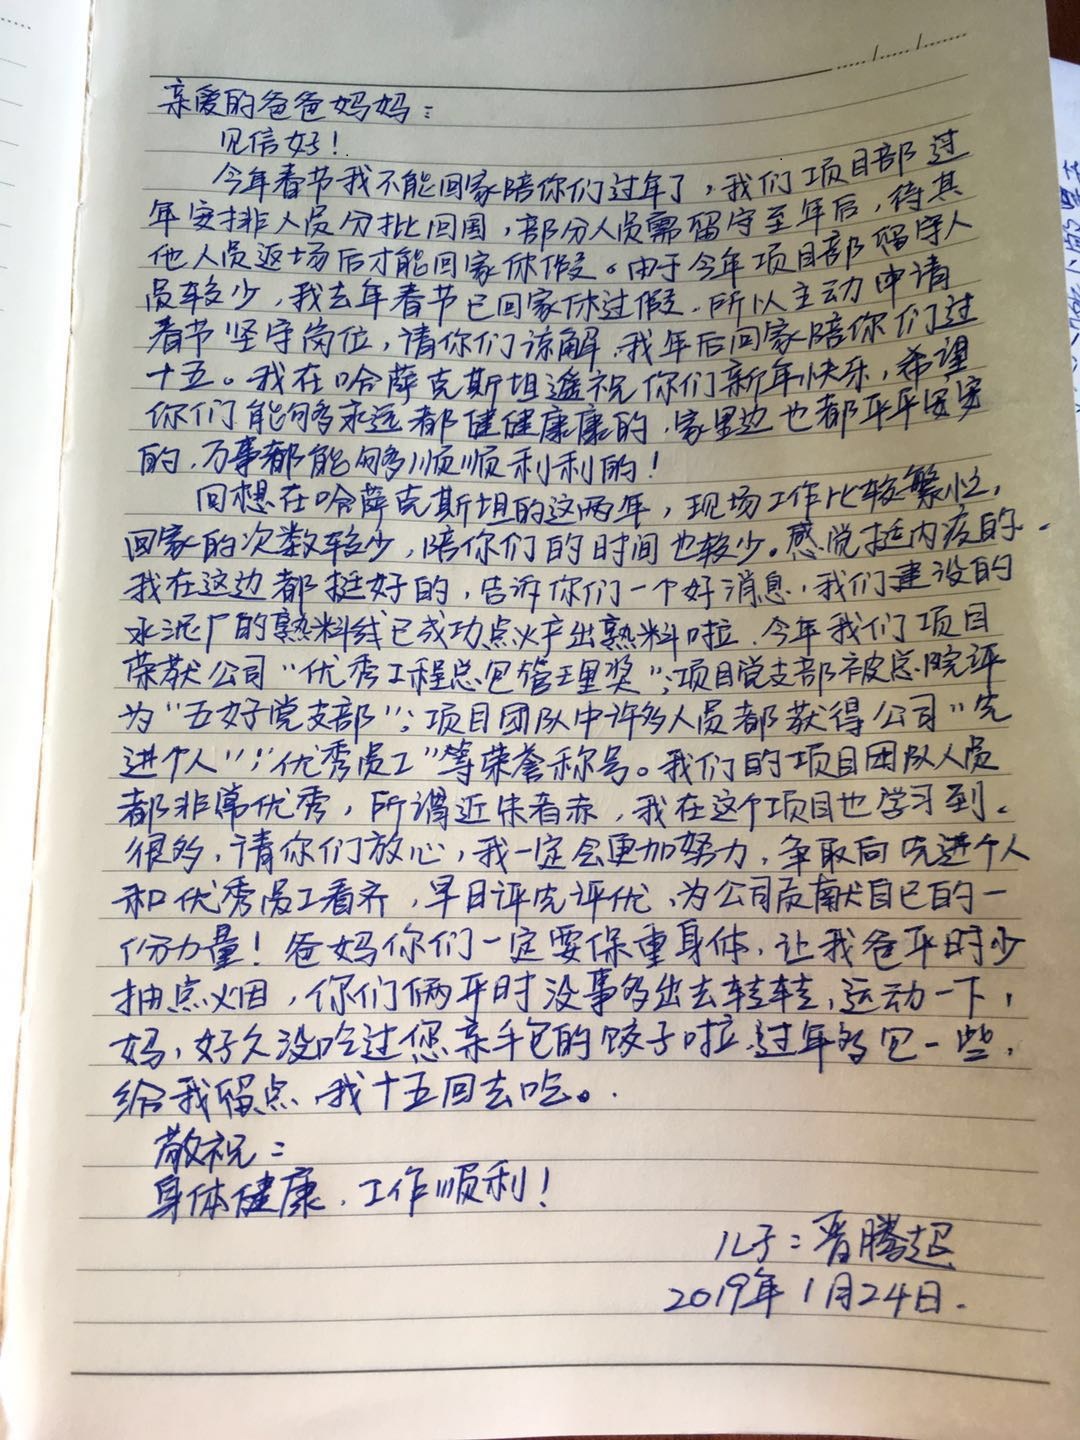 亲爱的爸爸妈妈：
见信好！
今年春节我不能回家陪你们过年了，我们项目部过
年安排人员分批回国，部分人员需留守至年后，待其
他人员返场后才能回家休假。由于今年项目部留守人
员较少，我去年春节已回家休过假，所以主动申请
春节坚守岗位，请你们谅解，我年后回家陪你们过
十五。我在哈萨克斯坦遥祝你们新年快乐，希望
你们能够永远都健健康康的，家里边也都平平安安
的，万事都能够顺顺利利的！
回想在哈萨克斯坦的这两年，现场工作比较繁忙，
回家的次数较少，陪你们的时间也较少。感觉挺内疚的。
我在这边都挺好的，告诉你们一个好消息，我们建设的
水泥厂的熟料线已成功点火产出熟料啦，今年我们项目
荣获公司“优秀工程总包管理奖”；项目党支部被总院评
为“五好党支部”；项目团队中许多人员都获得公司“先
进个人”；“优秀员工”等荣誉称号。我们的项目团队人员
都非常优秀，所谓近朱者赤，我在这个项目也学习到
很多，请你们放心，我一定会更加努力，争取向先进个人
和优秀员工看齐，早日评先评优，为公司贡献自己的一
份力量！爸妈你们一定要保重身体，让我爸平时少
抽点烟，你们俩平时没事多出去转转，运动一下，
妈，好久没吃过您亲手包的饺子啦，过年多包一些，
给我留点，我十五回去吃。
敬祝：
身体健康，工作顺利！
儿子：晋腾起
2019年1月24日.